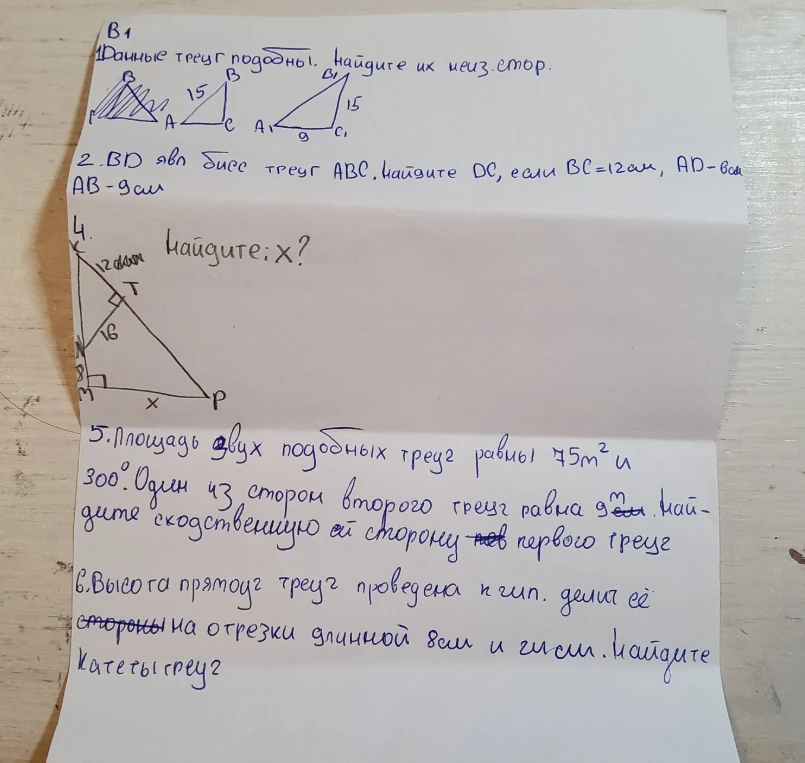 В1
1Данные треуг подобны. Найдите их неиз.стор.
B B B1
15 15
A C A1 9 C1
2. BD явл бисс треуг ABC. Найдите DC, если BC=12см, AD-6см
AB-9см
4. Найдите: x?
K 12
T
16
N
8
M x P
5. Площадь двух подобных треуг равны 75m² и
300°. Один из сторон второго треуг равна 9m. Най-
дите сходственную сторону первого треуг
6. Высота прямоуг треуг проведена к гип. делит её
на отрезки длинной 8см и см. Найдите
Катеты треуг